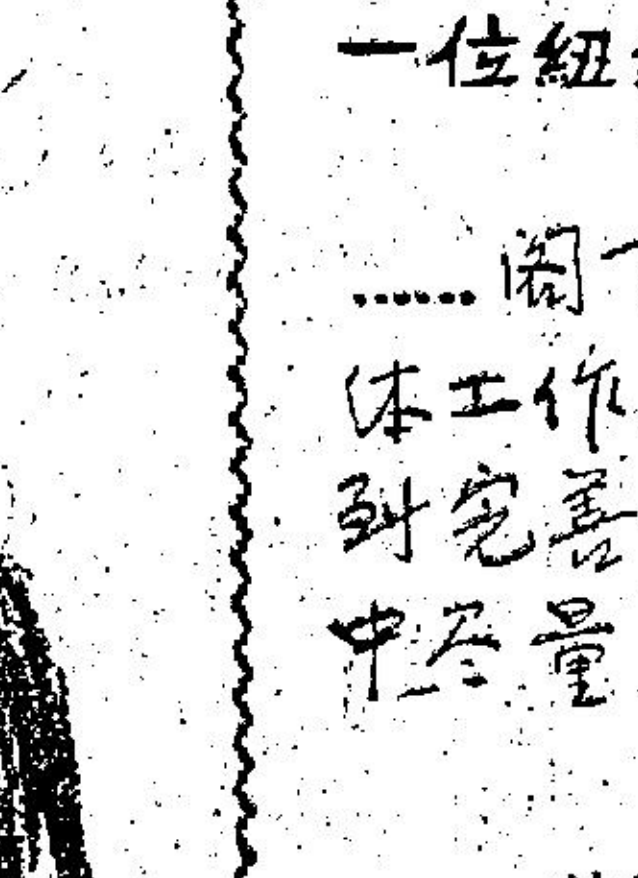 一位紐
……阁
体工作
到完善
中尽量